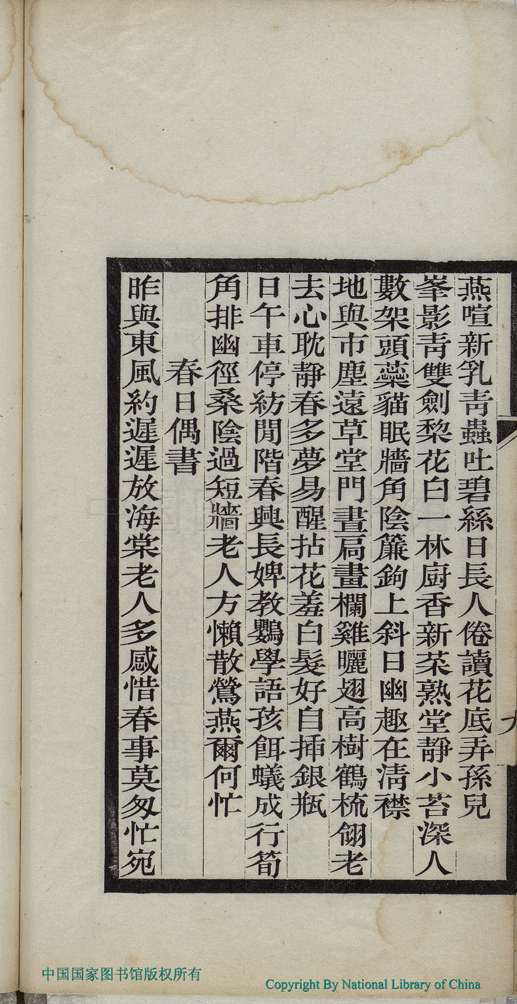 燕喧新乳青蟲吐碧絲日長人倦讀花底弄孫兒
峯影青雙劍黎花白一林廚香新菜熟堂靜小苔深人
數架頭蘂貓眠牆角陰簾鉤上斜日幽趣在清襟
地與市塵遠草堂門晝扃畫欄雞曬翅高樹鶴梳翎老
去心耽靜春多夢易醒拈花羞白髮好自揷銀瓶
日午車停紡閒階春興長婢教鸚學語孩餌蟻成行筍
角排幽徑桑陰過短牆老人方懶散鶯燕爾何忙
春日偶書
昨與東風約遲遲放海棠老人多感惜春事莫匆忙宛
中国国家图书馆版权所有
Copyright By National Library of China